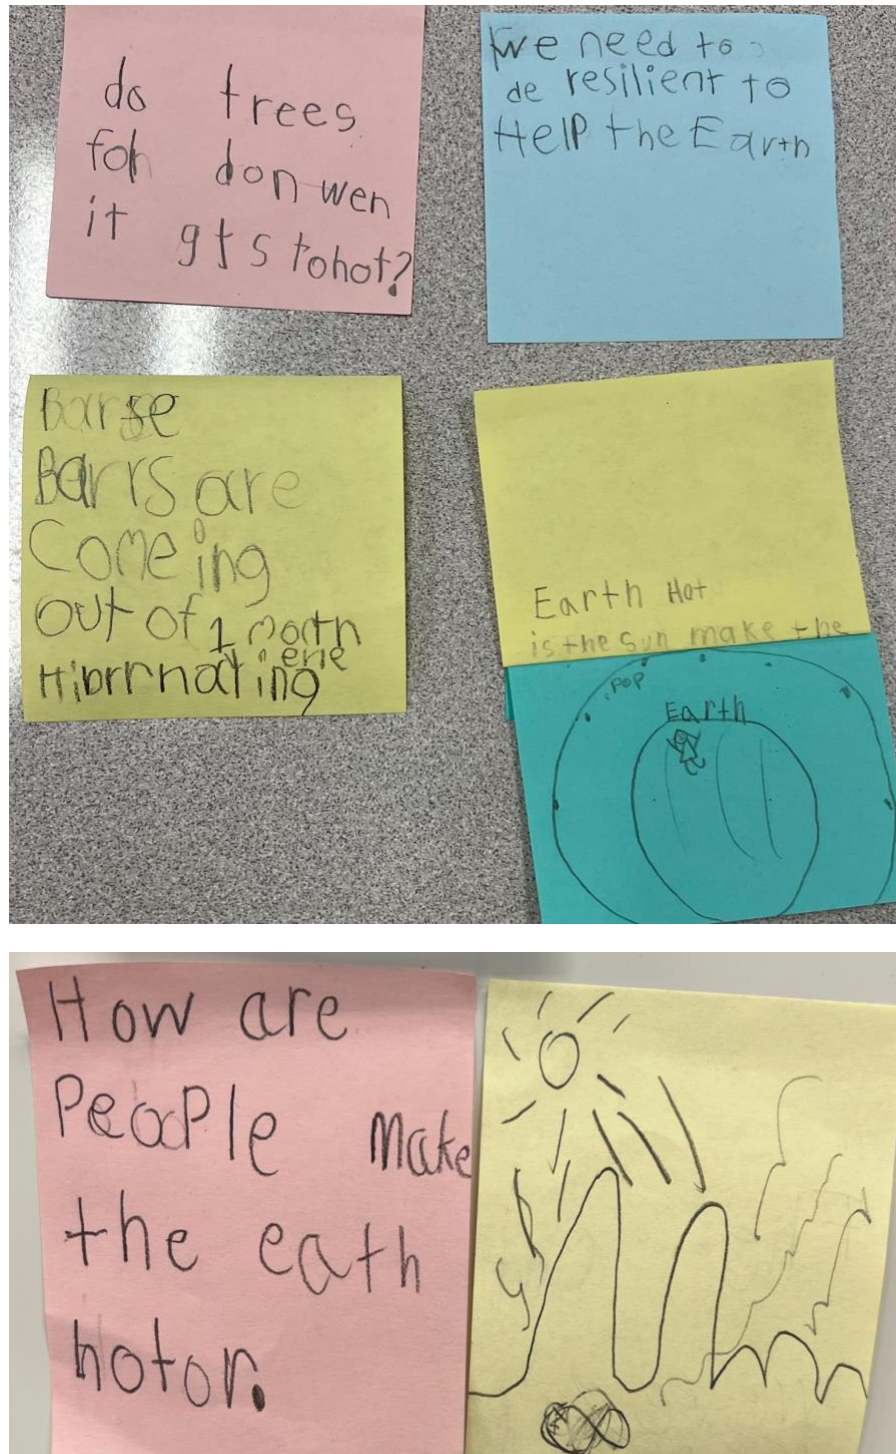 do trees
foh don wen
it gts tohot?
We need to
de resilient to
Help the Earth
Barse
Barrs are
Comeing
out of 1 month
erie
Hibrrnating
Earth Hot
is the sun make the
POP
Earth
How are
People make
the eath
hotor.